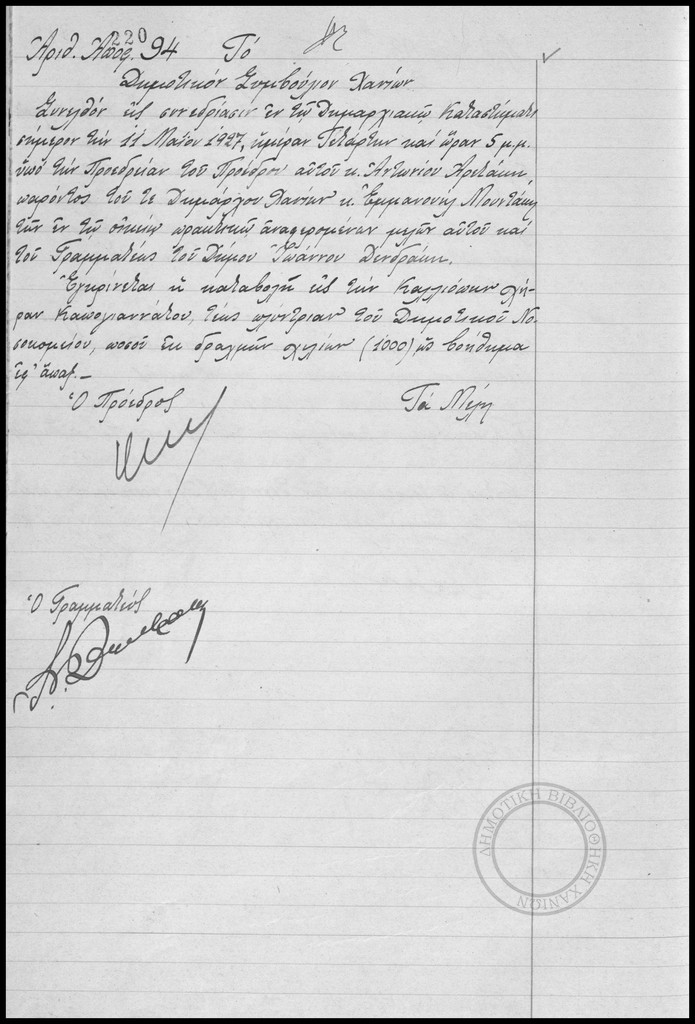 220
Ἀριθ. Ἀποφ. 94 Τό
Δημοτικόν Συμβούλιον Χανίων
Συνελθόν εἰς συνεδρίασιν ἐν τῷ Δημαρχιακῷ Καταστήματι
σήμερον τήν 11 Μαΐου 1927, ἡμέραν Τετάρτην καί ὥραν 5 μ.μ.
ὑπό τήν Προεδρείαν τοῦ Προέδρου αὐτοῦ κ. Ἀντωνίου Ἀρετάκη,
παρόντος τοῦ τε Δημάρχου Χανίων κ. Ἐμμανουήλ Μουντάκη
τῶν ἐν τῷ οἰκείῳ πρακτικῷ ἀναφερομένων μελῶν αὐτοῦ καί
τοῦ Γραμματέως τοῦ Δήμου Ἰωάννου Δενδράκη.
Ἐγκρίνεται ἡ καταβολή εἰς τήν Καλλιόπην χή-
ραν Καπογιαννάτου, τέως πλύντριαν τοῦ Δημοτικοῦ Νο-
σοκομείου, ποσοῦ ἐκ δραχμῶν χιλίων (1000) ὡς βοήθημα
ἐφ' ἅπαξ.—
Ὁ Πρόεδρος Τά Μέλη
Ὁ Γραμματεύς
ΔΗΜΟΤΙΚΗ ΒΙΒΛΙΟΘΗΚΗ ΧΑΝΙΩΝ